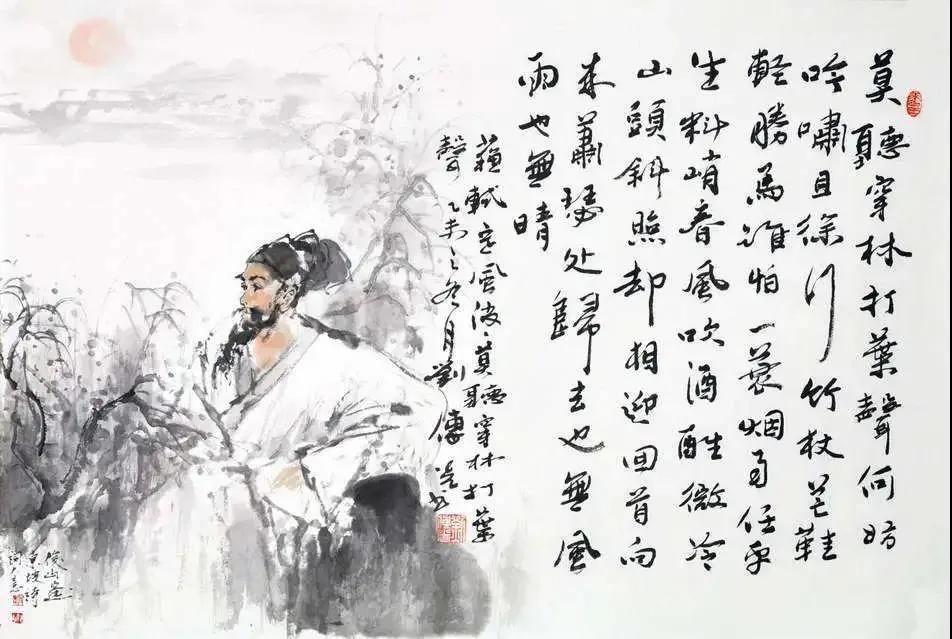 莫聽穿林打葉聲何妨
吟嘯且徐行竹杖芒鞋
輕勝馬誰怕一蓑烟雨任平
生料峭春風吹酒醒微冷
山頭斜照却相迎回首向
来蕭瑟处歸去也無風
雨也無晴
蘇軾定風波莫聽穿林打葉
聲乙未之冬月劉傳
俊山畫
東坡詩
詞意